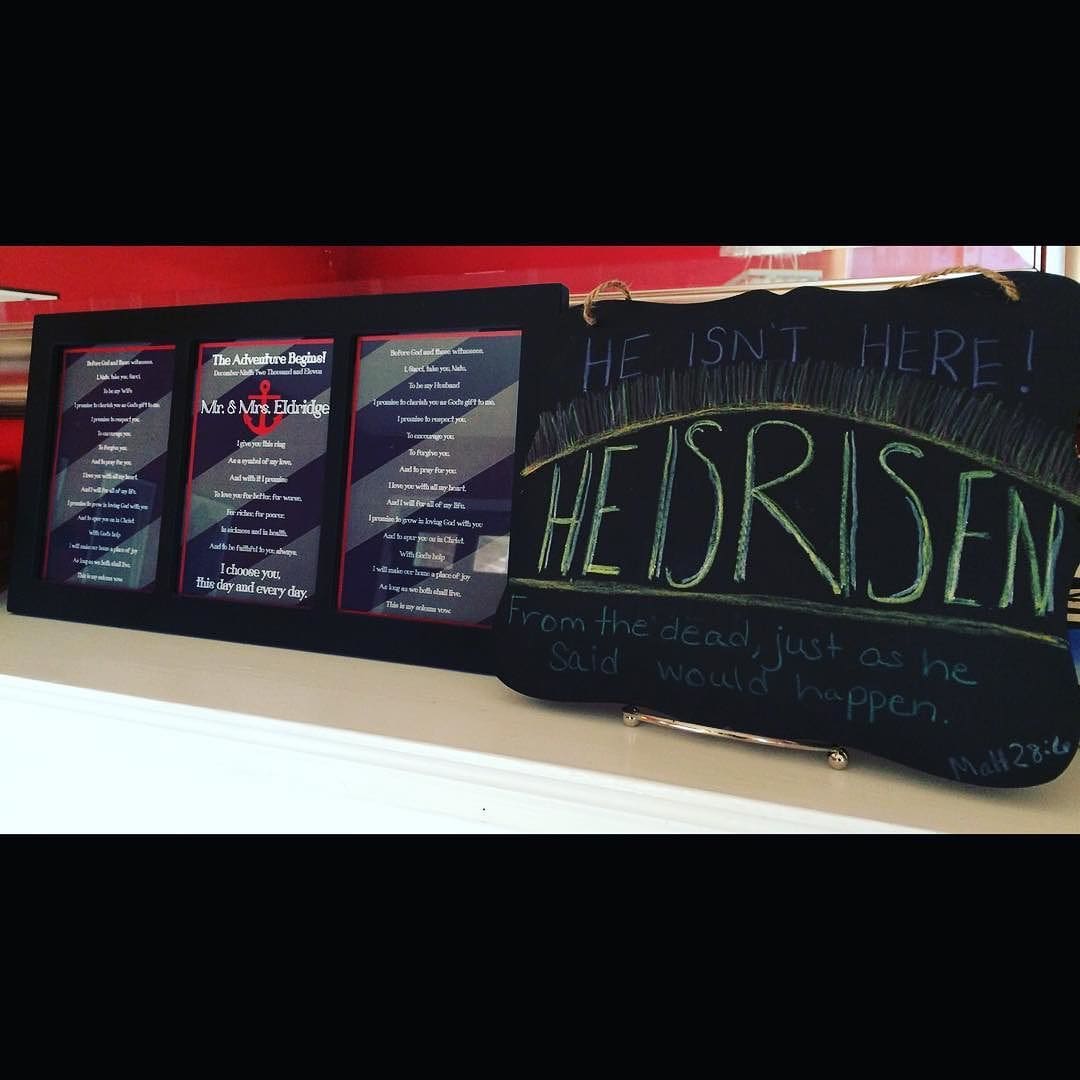 Before God and these witnesses,
I, Nate, take you,
To be my Wife
I promise to cherish you as God's gift to me.
I promise to respect you.
To encourage you.
To forgive you.
And to pray for you.
I love you with all my heart.
And I will for all of my life.
I promise to grow in loving God with you
And to spur you on in Christ.
With God's help
I will make our home a place of joy
As long as we both shall live.
This is my solemn vow.
The Adventure Begins!
December Ninth Two Thousand and Eleven
Mr. & Mrs. Eldridge
I give you this ring
As a symbol of my love,
And with it I promise
To love you for better, for worse,
For richer, for poorer,
In sickness and in health,
And to be faithful to you always.
I choose you,
this day and every day.
Before God and these witnesses,
take you, Nate,
To be my Husband
I promise to cherish you as God's gift to me.
I promise to respect you.
To encourage you.
To forgive you.
And to pray for you.
I love you with all my heart.
And I will for all of my life.
I promise to grow in loving God with you
And to spur you on in Christ.
With God's help
I will make our home a place of joy
As long as we both shall live.
This is my solemn vow.
HE ISN'T HERE!
HE IS RISEN
From the dead, just as he
Said would happen.
Matt 28:6